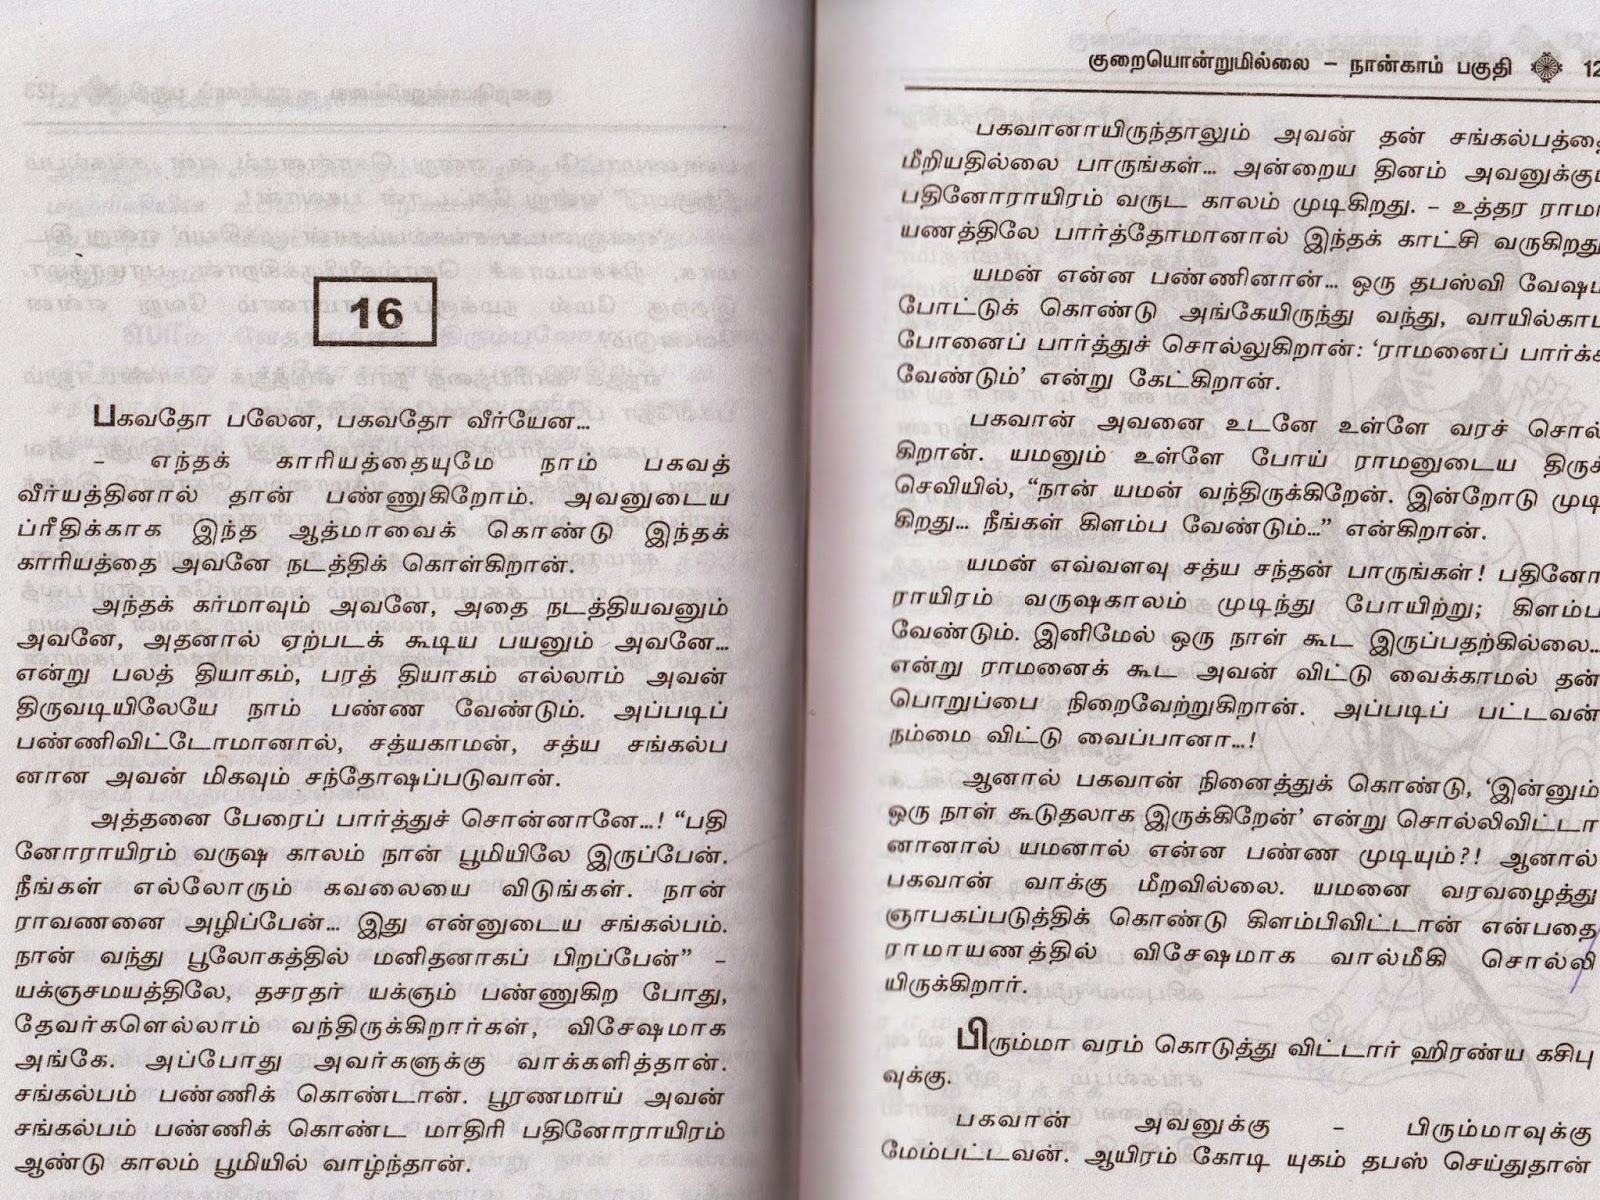 16
பகவதோ பலேன, பகவதோ வீர்யேன...
– எந்தக் காரியத்தையுமே நாம் பகவத்
வீர்யத்தினால் தான் பண்ணுகிறோம். அவனுடைய
ப்ரீதிக்காக இந்த ஆத்மாவைக் கொண்டு இந்தக்
காரியத்தை அவனே நடத்திக் கொள்கிறான்.
அந்தக் கர்மாவும் அவனே, அதை நடத்தியவனும்
அவனே, அதனால் ஏற்படக் கூடிய பயனும் அவனே...
என்று பலத் தியாகம், பரத் தியாகம் எல்லாம் அவன்
திருவடியிலேயே நாம் பண்ண வேண்டும். அப்படிப்
பண்ணிவிட்டோமானால், சத்யகாமன், சத்ய சங்கல்ப
னான அவன் மிகவும் சந்தோஷப்படுவான்.
அத்தனை பேரைப் பார்த்துச் சொன்னானே...! “பதி
னோராயிரம் வருஷ காலம் நான் பூமியிலே இருப்பேன்.
நீங்கள் எல்லோரும் கவலையை விடுங்கள். நான்
ராவணனை அழிப்பேன்... இது என்னுடைய சங்கல்பம்.
நான் வந்து பூலோகத்தில் மனிதனாகப் பிறப்பேன்” –
யக்ஞசமயத்திலே, தசரதர் யக்ஞம் பண்ணுகிற போது,
தேவர்களெல்லாம் வந்திருக்கிறார்கள், விசேஷமாக
அங்கே. அப்போது அவர்களுக்கு வாக்களித்தான்.
சங்கல்பம் பண்ணிக் கொண்டான். பூரணமாய் அவன்
சங்கல்பம் பண்ணிக் கொண்ட மாதிரி பதினோராயிரம்
ஆண்டு காலம் பூமியில் வாழ்ந்தான்.
குறையொன்றுமில்லை – நான்காம் பகுதி 12
பகவானாயிருந்தாலும் அவன் தன் சங்கல்பத்தை
மீறியதில்லை பாருங்கள்... அன்றைய தினம் அவனுக்கு
பதினோராயிரம் வருட காலம் முடிகிறது. – உத்தர ராமா
யணத்திலே பார்த்தோமானால் இந்தக் காட்சி வருகிறது
யமன் என்ன பண்ணினான்... ஒரு தபஸ்வி வேஷ
போட்டுக் கொண்டு அங்கேயிருந்து வந்து, வாயில்காப்
போனைப் பார்த்துச் சொல்லுகிறான்: ‘ராமனைப் பார்க்க
வேண்டும்’ என்று கேட்கிறான்.
பகவான் அவனை உடனே உள்ளே வரச் சொல்
கிறான். யமனும் உள்ளே போய் ராமனுடைய திருச்
செவியில், “நான் யமன் வந்திருக்கிறேன். இன்றோடு முடி
கிறது... நீங்கள் கிளம்ப வேண்டும்...” என்கிறான்.
யமன் எவ்வளவு சத்ய சந்தன் பாருங்கள்! பதினோ
ராயிரம் வருஷகாலம் முடிந்து போயிற்று; கிளம்ப
வேண்டும். இனிமேல் ஒரு நாள் கூட இருப்பதற்கில்லை...
என்று ராமனைக் கூட அவன் விட்டு வைக்காமல் தன்
பொறுப்பை நிறைவேற்றுகிறான். அப்படிப் பட்டவன்
நம்மை விட்டு வைப்பானா...!
ஆனால் பகவான் நினைத்துக் கொண்டு, ‘இன்னும்
ஒரு நாள் கூடுதலாக இருக்கிறேன்’ என்று சொல்லிவிட்டா
னானால் யமனால் என்ன பண்ண முடியும்?! ஆனால்
பகவான் வாக்கு மீறவில்லை. யமனை வரவழைத்து
ஞாபகப்படுத்திக் கொண்டு கிளம்பிவிட்டான் என்பதை
ராமாயணத்தில் விசேஷமாக வால்மீகி சொல்லி
யிருக்கிறார்.
பிரும்மா வரம் கொடுத்து விட்டார் ஹிரண்ய கசிபு
வுக்கு.
பகவான் அவனுக்கு – பிரும்மாவுக்கு
மேம்பட்டவன். ஆயிரம் கோடி யுகம் தபஸ் செய்துதான்